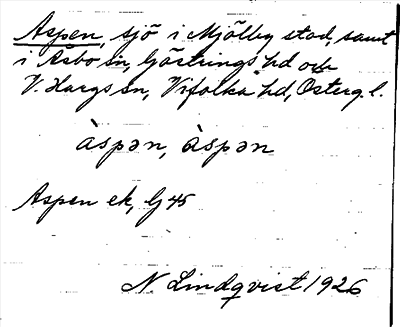 Aspen, sjö i Mjölby stad, samt
i Åsbo sn, Göstrings hd och
V. Hargs sn, Vifolka hd, Österg. l.
àspən, àspən
Aspen ek, G 45
N. Lindqvist 1926